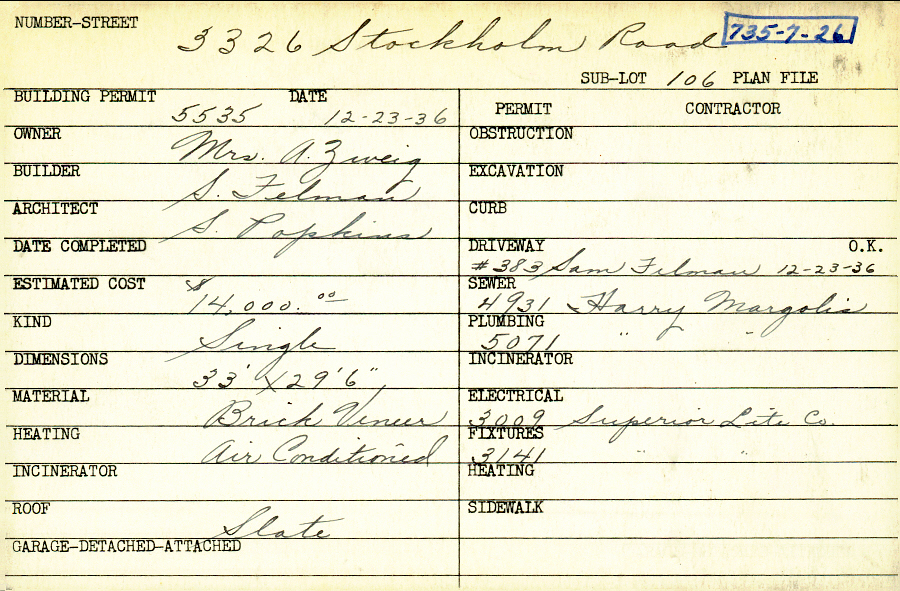 NUMBER-STREET
3326 Stockholm Road 735-7-26
SUB-LOT 106 PLAN FILE
BUILDING PERMIT 5535 DATE 12-23-36
OWNER Mrs. A. Zweig
BUILDER S. Felman
ARCHITECT S. Popkins
DATE COMPLETED
ESTIMATED COST $14,000.00
KIND Single
DIMENSIONS 33' X 29'6"
MATERIAL Brick Veneer
HEATING Air Conditioned
INCINERATOR
ROOF Slate
GARAGE-DETACHED-ATTACHED
PERMIT CONTRACTOR
OBSTRUCTION
EXCAVATION
CURB
DRIVEWAY O.K.
#383 Sam Felman 12-23-36
SEWER
4931 Harry Margolis
PLUMBING
5071 " "
INCINERATOR
ELECTRICAL
3009 Superior Lite Co.
FIXTURES
3141 " "
HEATING
SIDEWALK